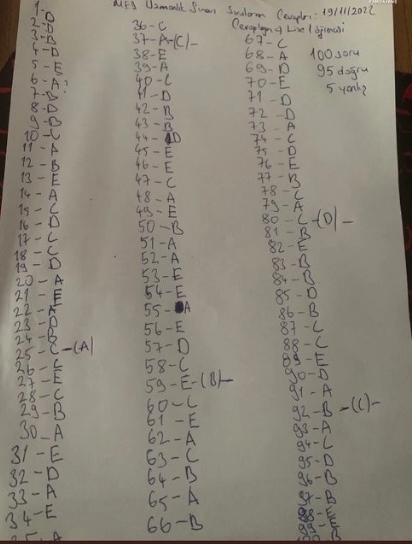 MEB Uzmanlık Sınavı Soruların Cevapları: 19/11/2022
Cevaplayan 4 Lise 1 öğrencisi
100 soru
95 doğru
5 yanlış
1.
2-
3-
4- D
5- E
6- A
7- B
8- D
9- B
10-
11- A
12- B
13- E
14- A
15- C
16- D
17- C
18- C
19- D
20- A
21- E
22- A
23- D
24- B
25- C-(A)
26- E
27- E
28- C
29- B
30- A
31- E
32- D
33- A
34- E
A
36- C
37- A-(C)-
38- E
39- A
40- C
41- D
42- B
43- B
44- D
45- E
46- E
47- C
48- A
49- E
50- B
51- A
52- A
53- E
54- E
55- A
56- E
57- D
58- C
59- E-(B)-
60- C
61- E
62- A
63- C
64- B
65- A
66- B
67- C
68- A
69- D
70- E
71- D
72- D
73- A
74- C
75- D
76- E
77- B
78- C
79- A
80- C-(D)-
81- B
82- E
83- B
84- B
85- D
86- B
87- C
88- C
89- E
90- D
91- A
92- B-(C)-
93- A
94- C
95- D
96- B
97- B
98- E